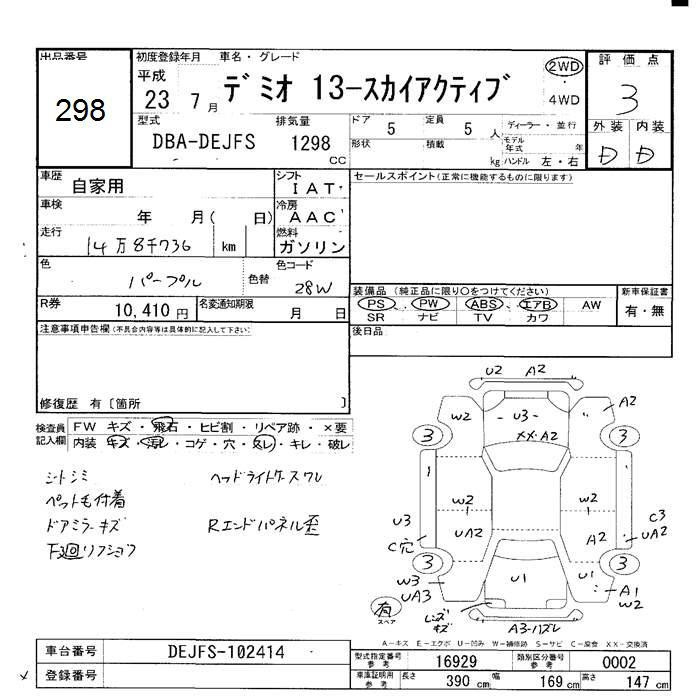 出品番号
298
初度登録年月
平成
23 7月
車名・グレード
デミオ 13-スカイアクティブ
2WD
・
4WD
評価点
3
外装 内装
D D
型式
DBA-DEJFS
排気量
1298
CC
ドア 5
定員 5 人
形状
積載 kg
ディーラー・並行
モデル年式 年
ハンドル 左・右
車歴
自家用
シフト
IAT
車検
年 月( 日)
冷房
AAC
走行
14万8千736 km
燃料
ガソリン
色
パープル
色替
色コード
28W
R券
10,410円
名変通知期限
月 日
セールスポイント(正常に機能するものに限ります)
装備品(純正品に限り○をつけてください)
PS PW ABS エアB AW
SR ナビ TV カワ
新車保証書
有・無
後日品
注意事項申告欄(不具合内容等は具体的に記入して下さい)
修復歴 有〔箇所 〕
検査員
記入欄
FW キズ・飛石・ヒビ割・リペア跡・×要
内装 キズ・汚レ・コゲ・穴・スレ・キレ・破レ
シートシミ
ペット毛付着
ドアミラーキズ
下廻リフショク
ヘッドライトケースワレ
Rエンドパネル歪
U2 A2
W2
U3
XX・A2
A2
3 3
W2 W2
U3
UA2 A2
C3
UA2
C穴
3 3
W3
UA3
U1
U1
A1
W2
有
スペア
レンズキズ
A3-ハズレ
A-キズ E-エクボ U-凹み W-補修跡 S-サビ C-腐食 XX-交換済
車台番号
DEJFS-102414
登録番号
型式指定番号
参考
16929
類別区分番号
参考
0002
車庫証明用
参考
長さ 390 cm
幅 169 cm
高さ 147 cm